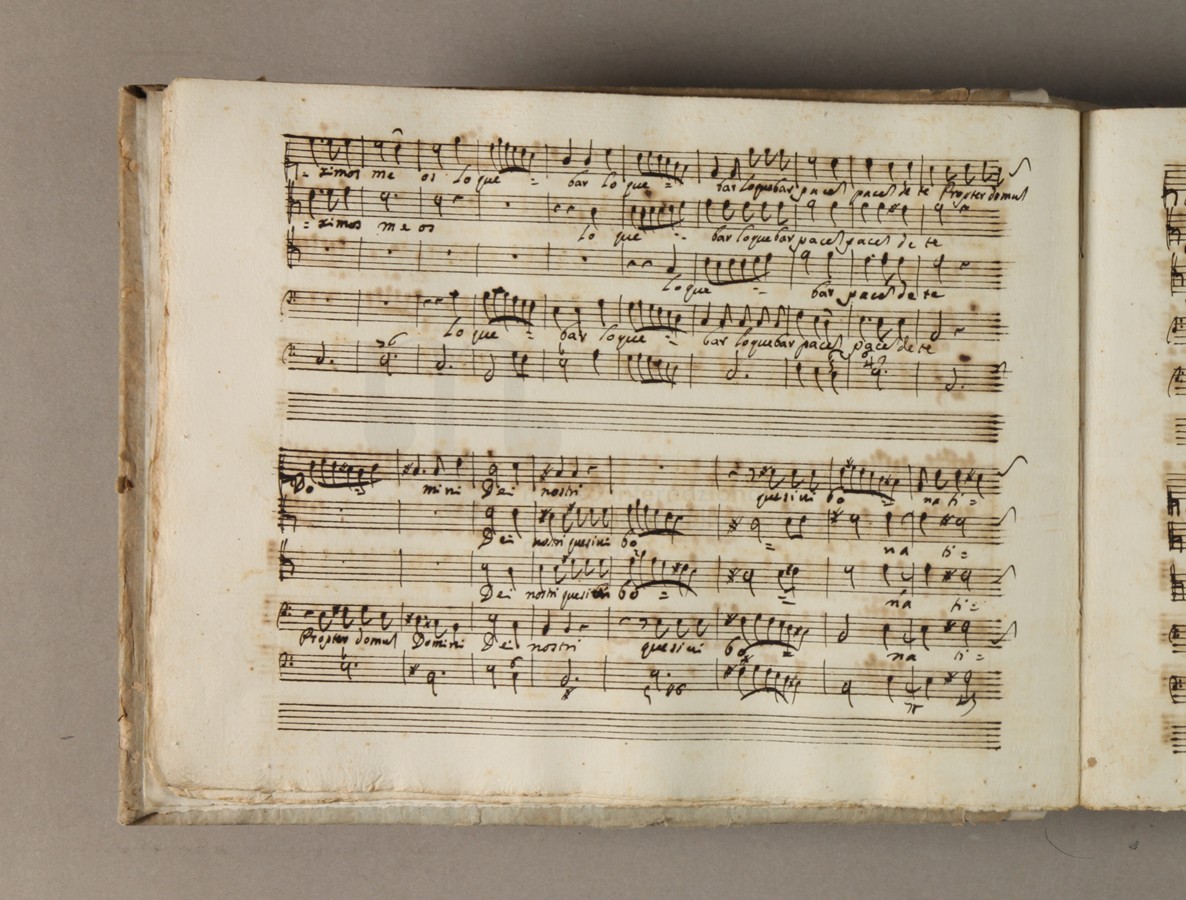 = ximos me os lo que = bar lo que = bar loquebar pacem pacem de te Propter domum
= ximos me os lo que = bar loquebar pacem pacem de te
loque = bar pacem de te
lo que = bar loque = bar loquebar pacem pacem de te
Do = mini Dei nostri quesivi bo = na ti =
Dei nostri quesivi bo = na ti =
Dei nostri quesivi bo = = na ti =
Propter domum Domini Dei nostri quesivi bo = na ti =